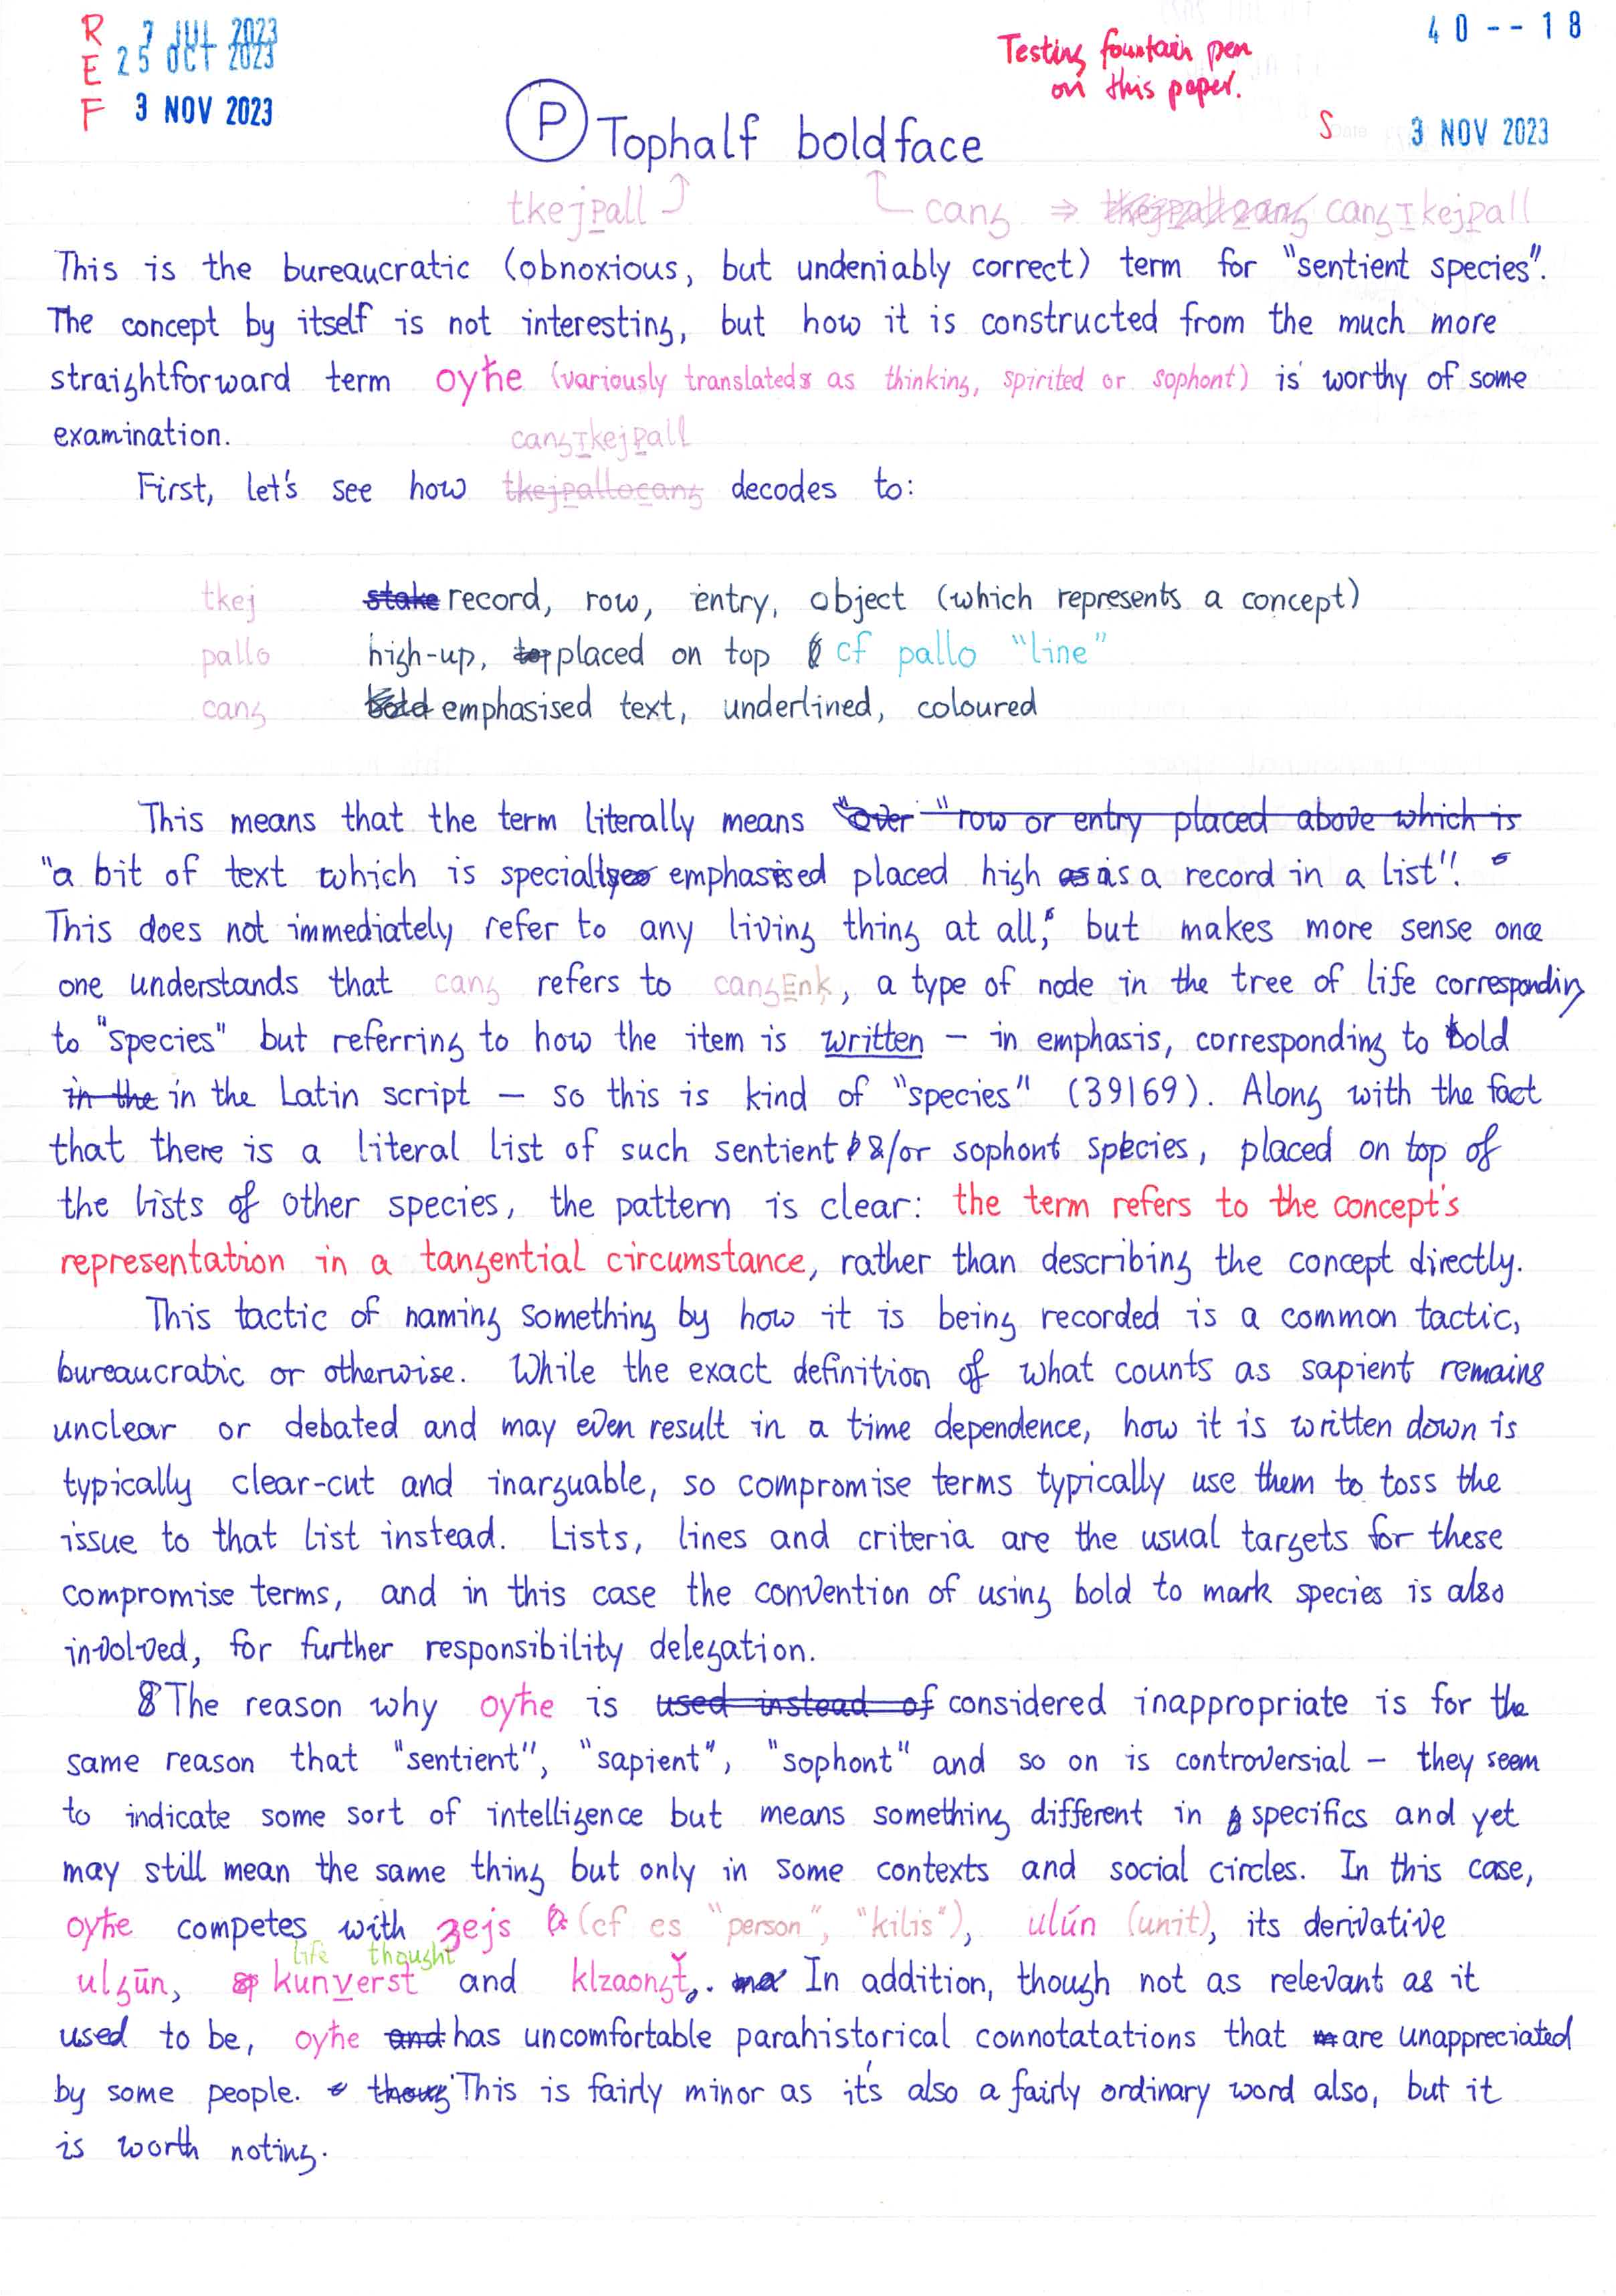 R E F
7 JUL 2023
25 OCT 2023
3 NOV 2023
Testing fountain pen
on this paper.
40--18
S 3 NOV 2023
P Tophalf boldface
tkejpall cang ⇒ cangIkejpall
This is the bureaucratic (obnoxious, but undeniably correct) term for "sentient species".
The concept by itself is not interesting, but how it is constructed from the much more
straightforward term oyħe (variously translated as thinking, spirited or sophont) is worthy of some
examination.
cangIkejpall
First, let's see how tkejpallocang decodes to:
tkej stake record, row, entry, object (which represents a concept)
pallo high-up, top placed on top cf pallo "line"
cang bold emphasised text, underlined, coloured
This means that the term literally means "over "row or entry placed above which is
"a bit of text which is specially emphasised placed high as is a record in a list".
This does not immediately refer to any living thing at all, but makes more sense once
one understands that cang refers to cangEnk, a type of node in the tree of life corresponding
to "species" but referring to how the item is written – in emphasis, corresponding to bold
in the in the Latin script – so this is kind of "species" (39169). Along with the fact
that there is a literal list of such sentient &/or sophont species, placed on top of
the lists of other species, the pattern is clear: the term refers to the concept's
representation in a tangential circumstance, rather than describing the concept directly.
This tactic of naming something by how it is being recorded is a common tactic,
bureaucratic or otherwise. While the exact definition of what counts as sapient remains
unclear or debated and may even result in a time dependence, how it is written down is
typically clear-cut and inarguable, so compromise terms typically use them to toss the
issue to that list instead. Lists, lines and criteria are the usual targets for these
compromise terms, and in this case the convention of using bold to mark species is also
involved, for further responsibility delegation.
The reason why oyħe is used instead of considered inappropriate is for the
same reason that "sentient", "sapient", "sophont" and so on is controversial – they seem
to indicate some sort of intelligence but means something different in specifics and yet
may still mean the same thing but only in some contexts and social circles. In this case,
oyħe competes with zejs (cf es "person", "kilis"), ulún (unit), its derivative
life thought
ulgūn, kunverst and klzaongť. In addition, though not as relevant as it
used to be, oyħe and has uncomfortable parahistorical connotatations that are unappreciated
by some people. thoug This is fairly minor as it's also a fairly ordinary word also, but it
is worth noting.